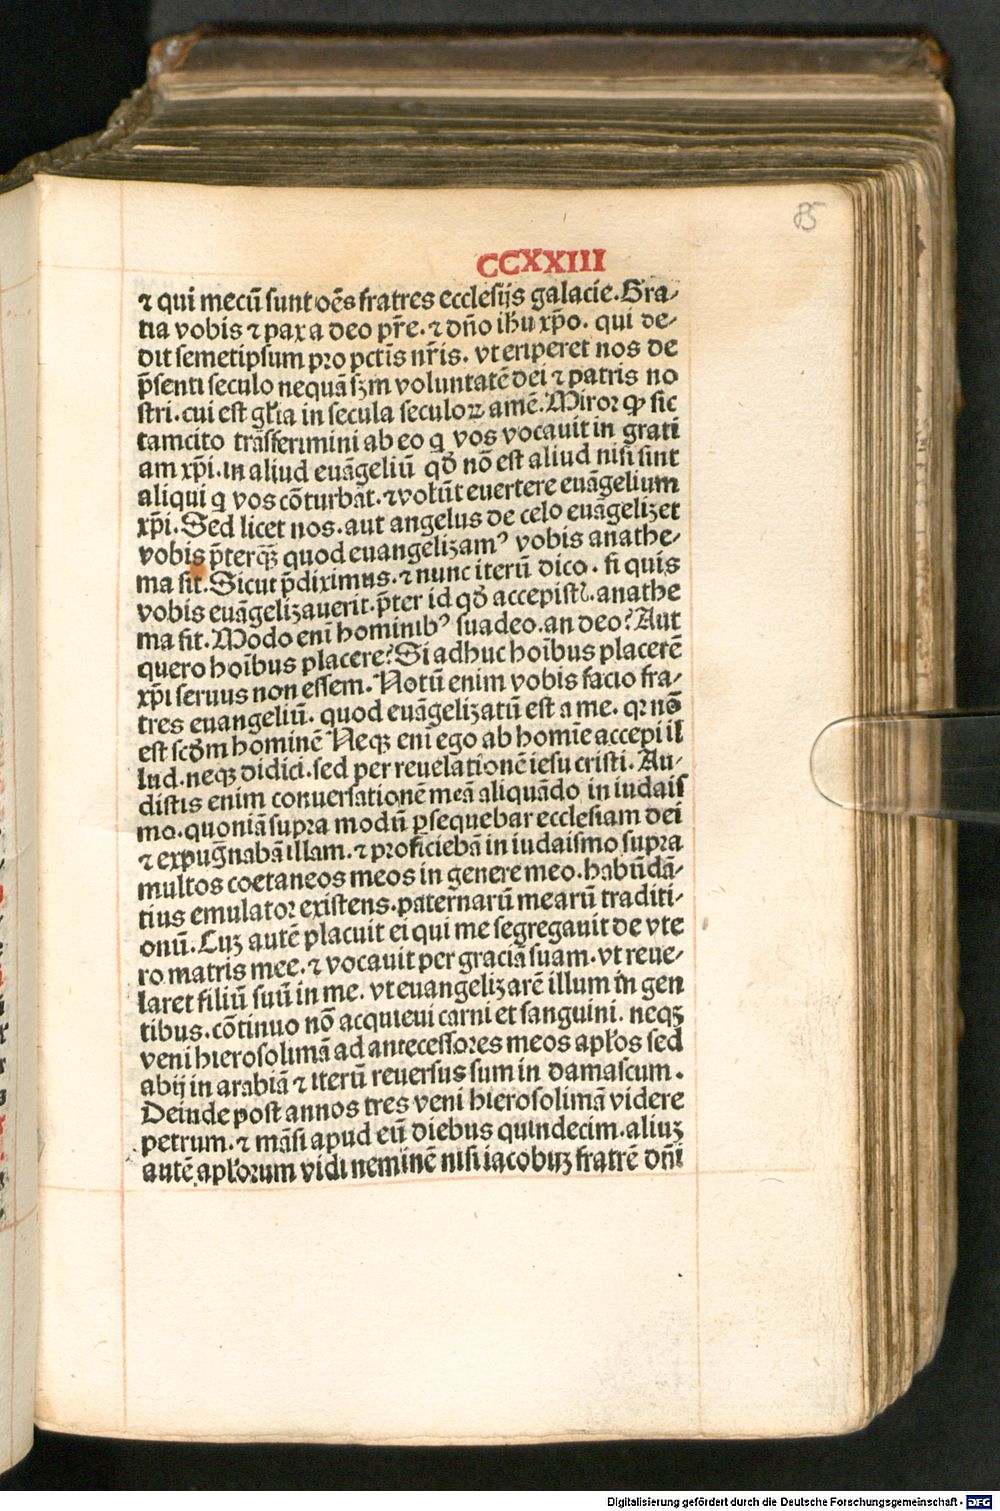 85
CCXXIII
⁊ qui mecū sunt oēs fratres ecclesijs galacie. Gra-
tia vobis ⁊ pax a deo pr̄e. ⁊ dn̄o ihu xp̄o. qui de-
dit semetipsum pro pctīs nr̄is. vt eriperet nos de
p̄senti seculo nequā ſꝫm voluntatē dei ⁊ patris no
stri. cui est gl̄ia in secula seculoꝝ amē. Miror ꝙ sic
tamcito trāsferimini ab eo q̄ vos vocauit in grati
am xp̄i. in aliud euāgeliū qd̄ nō est aliud nisi sint
aliqui q̄ vos cōturbāt. ⁊ volūt euertere euāgelium
xp̄i. Sed licet nos. aut angelus de celo euāgelizet
vobis p̄terqꝫ quod euangelizamꝰ vobis anathe-
ma sit. Sicut p̄diximus. ⁊ nunc iterū dico. si quis
vobis euāgelizauerit. p̄ter id qd̄ accepistꝭ. anathe
ma sit. Modo eni hominibꝰ suadeo. an deo? Aut
quero hoībus placere? Si adhuc hoībus placerē
xp̄i seruus non essem. Notū enim vobis facio fra-
tres euangeliū. quod euāgelizatū est a me. qꝛ nō
est scd̄m hominē Neqꝫ eni ego ab homīe accepi il
lud. neqꝫ didici. sed per reuelationē iesu cristi. Au-
distis enim conuersationē meā aliquādo in iudais
mo. quoniā supra modū ꝑsequebar ecclesiam dei
⁊ expugnabā illam. ⁊ proficiebā in iudaismo supra
multos coetaneos meos in genere meo. habūdā-
tius emulator existens. paternarū mearū traditi-
onū. Cuꝫ autē placuit ei qui me segregauit de vte
ro matris mee. ⁊ vocauit per graciā suam. vt reue-
laret filiū suū in me. vt euangelizarē illum in gen
tibus. cōtinuo nō acquieui carni et sanguini. neqꝫ
veni hierosolimā ad antecessores meos apl̄os sed
abij in arabiā ⁊ iterū reuersus sum in damascum.
Deinde post annos tres veni hierosolimā videre
petrum. ⁊ māsi apud eū diebus quindecim. aliuꝫ
autē apl̄orum vidi neminē nisi iacobuꝫ fratrē dn̄i
Digitalisierung gefördert durch die Deutsche Forschungsgemeinschaft - DFG